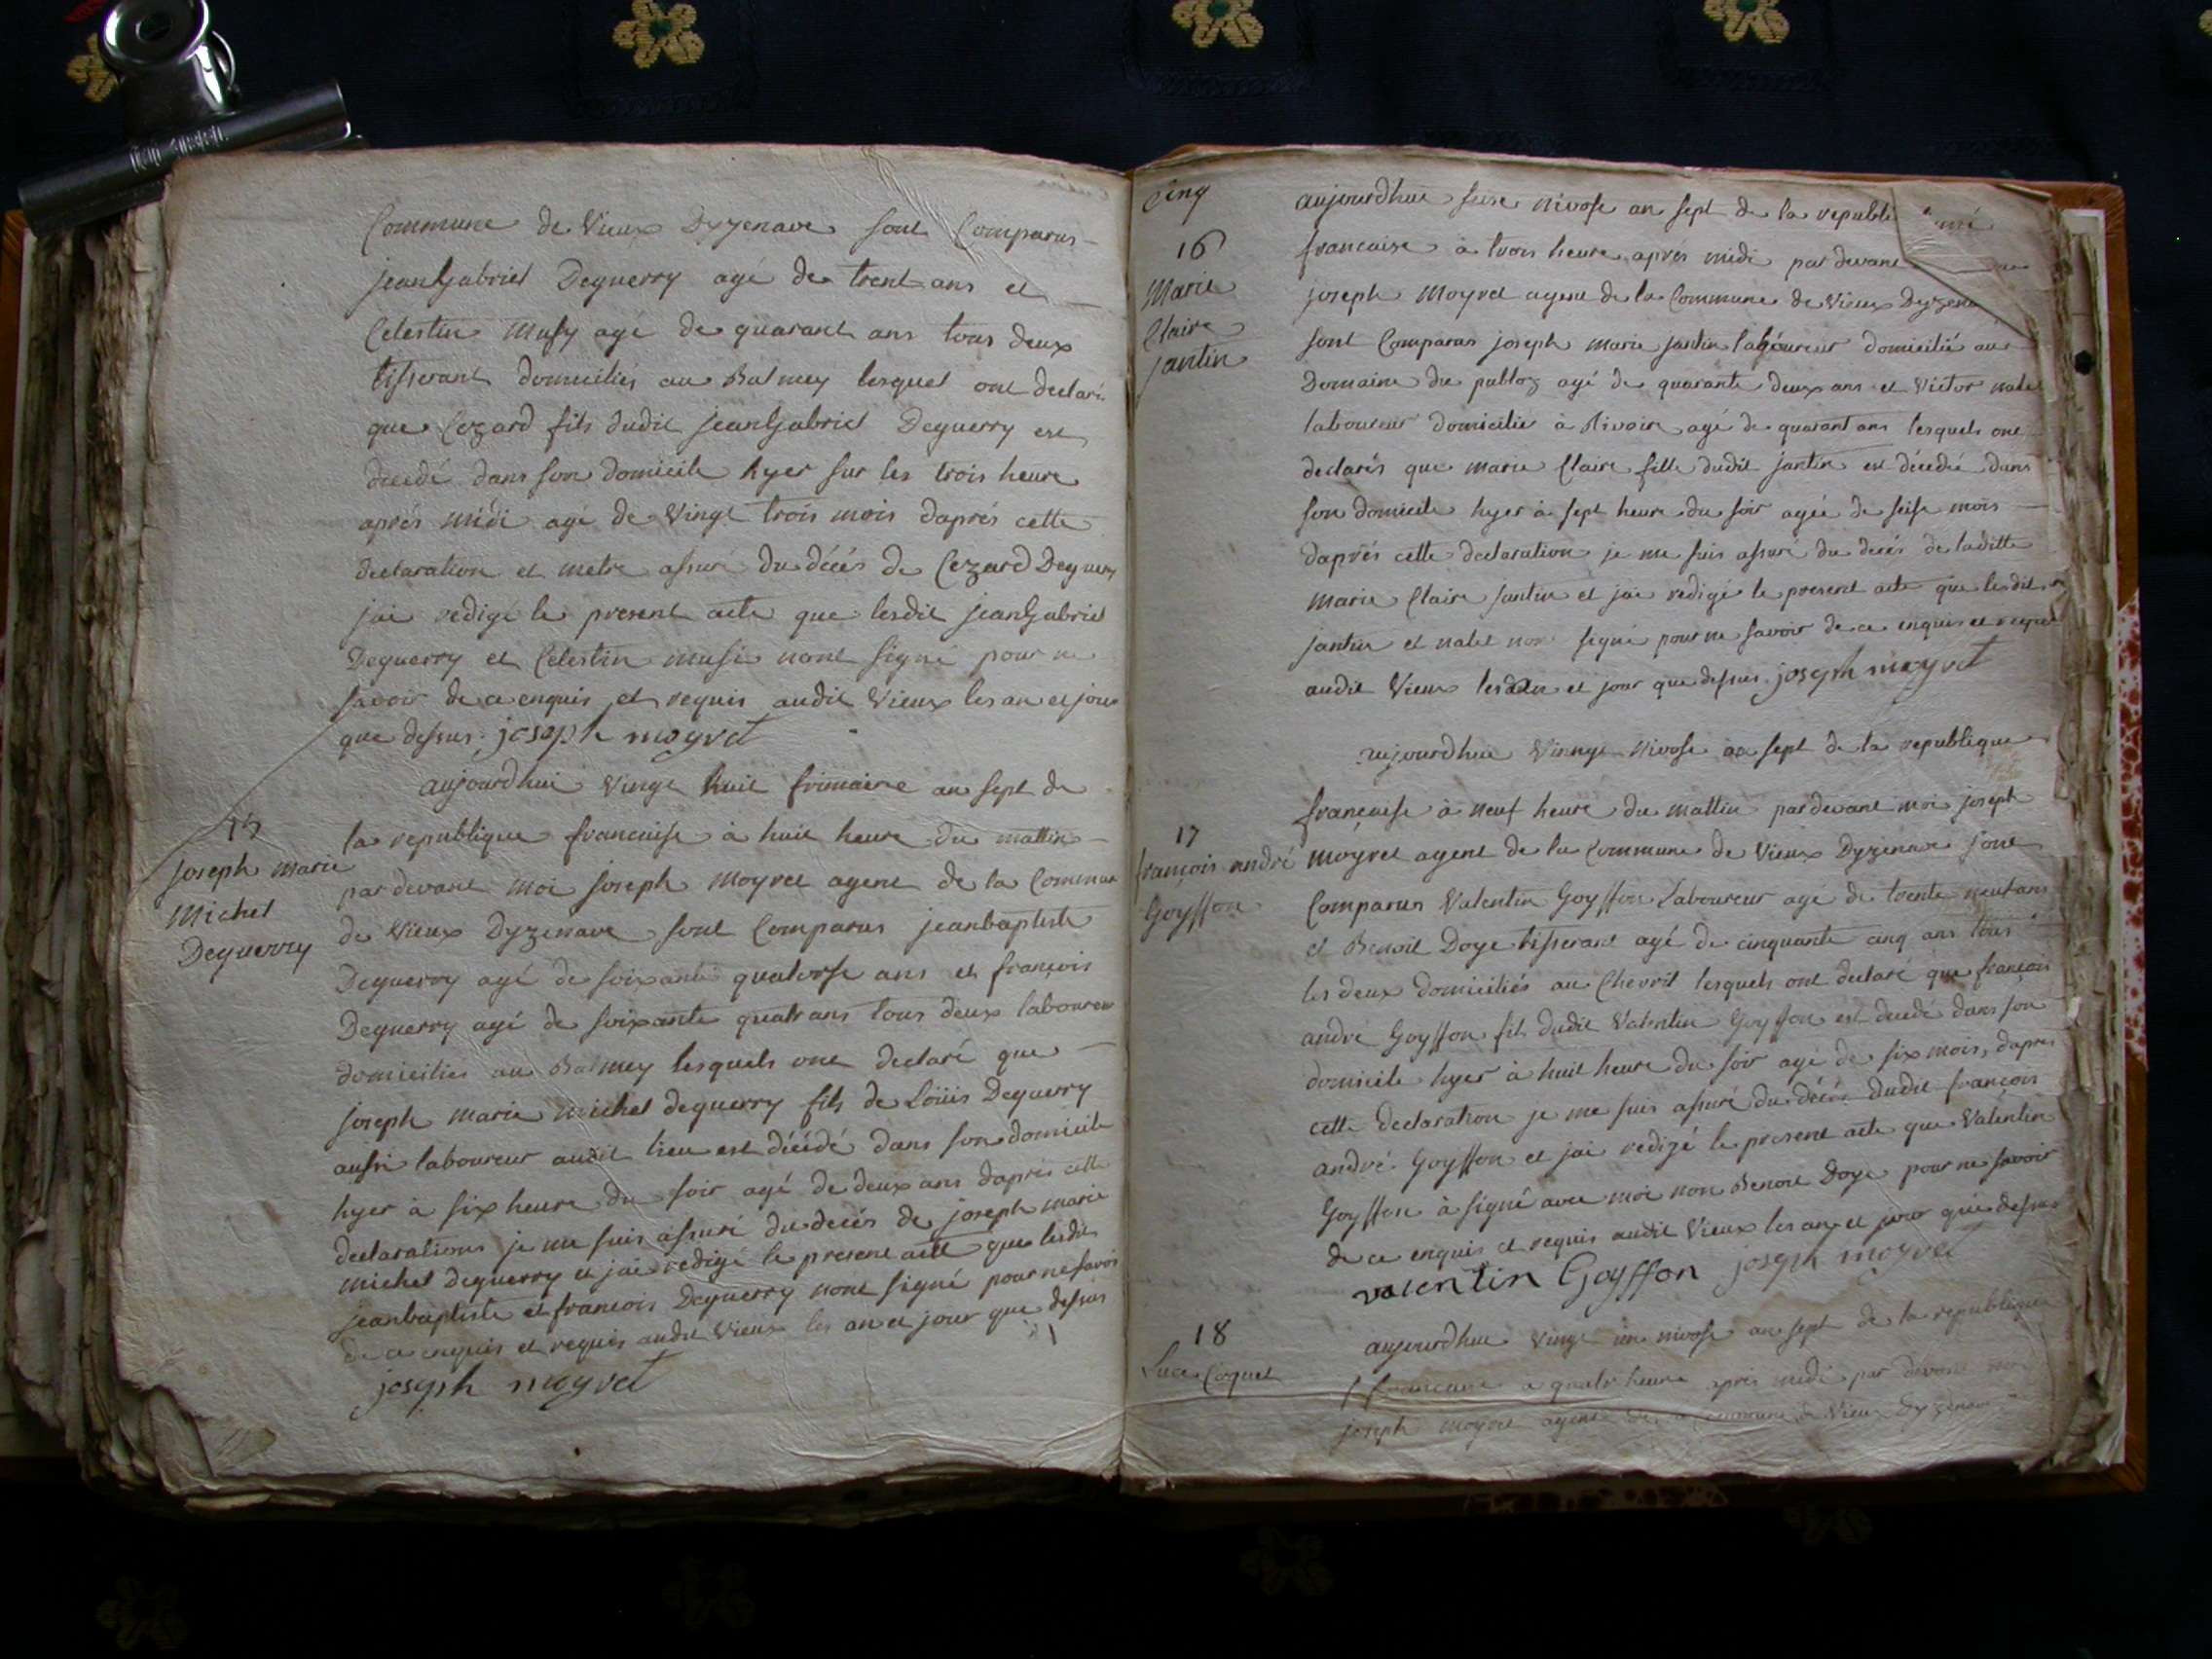 Commune de Vieux Dyzenave sont Comparus
jean Gabriel Deguerry agé de trent ans et
Celestin Musy agé de quarant ans tous deux
tisserant domiciliés au Balmey lesquel ont declaré
que Cezard fils dudit jean Gabriel Deguerry est
decedé dans son domicile hyer sur les trois heure
aprés midi agé de Vingt trois mois daprés cette
declaration et metre assuré du décés de Cezard Deguerry
jai redigé le present acte que lesdit jean Gabriel
Deguerry et Celestin musi nont signé pour ne
savoir de ce enquis et requis audit Vieux les an et jour
que dessus. joseph moyret
aujourdhui Vingt huit frimaire an sept de
15
la republique francaise à huit heure du mattin
joseph Marie
Michel
Deguerry
pardevant moi joseph Moyret agent de la Commune
de Vieux Dyzenave sont Comparus jeanbaptiste
Deguerry agé de soixante quatorse ans et françois
Deguerry agé de soixante quatr ans tous deux laboureur
domiciliés au Balmey lesquels ont declaré que
joseph marie michel deguerry fils de Loüis Deguerry
aussi laboureur audit lieu est décédé dans son domicile
hyer à six heure du soir agé de deux ans daprés cette
declarations je me suis assuré du decés de joseph marie
michel deguerry et jai redigé le present acte que lesdits
jeanbaptiste et francois Deguerry nont signé pour ne savoir
de ce enquis et requis audit Vieux les an et jour que dessus
joseph moyret
Cinq
16
Marie
Claire
jantin
aujourdhui seise nivose an sept de la republi
francaise à trois heure aprés midi pardevant
joseph Moyret agent de la Commune de Vieux Dyzena
sont Comparus joseph marie jantin laboureur domicilié au
Domaine du publoz agé de quarante deux ans et Victor nalet
laboureur domicilié à Rivoire agé de quarant ans lesquels ont
declarés que marie Claire fille dudit jantin est décédée dans
son domicile hyer à sept heure du soir agée de seise mois
daprés cette declaration je me suis assuré du decés de laditte
marie Claire jantin et jai redigé le present acte que lesdit
jantin et nalet non signé pour ne savoir de ce enquis et requis
audit Vieux les an et jour que dessus. joseph moyret
aujourdhui Vinngt Nivose an sept de la republique
17
françois andré
Goyffon
française à neuf heure du mattin pardevant moi joseph
moyret agent de la Commune de Vieux Dyzenave sont
Comparus Valentin Goyffon Laboureur agé de trente neuf ans
et Benoit Doye tisserant agé de cinquante cinq ans tous
les deux domiciliés au Chevril lesquels ont declaré que françois
andré Goyffon fils dudit Valentin Goyffon est decedé dans son
domicile hyer à huit heure du soir agé de six mois, daprés
cette declaration je me suis assuré du décés dudit françois
andré Goyffon et jai redigé le present acte que Valentin
Goyffon à signé avec moi non Benoit Doye pour ne savoir
de ce enquis et requis audit Vieux les an et jour que dessus
valentin Goyffon joseph moyret
18
Luce Coquet
aujourdhui Vingt un nivose an sept de la republique
francaise à quatr heure aprés midi par devant moi
joseph moyret agent de la Commune de Vieux Dyzenave